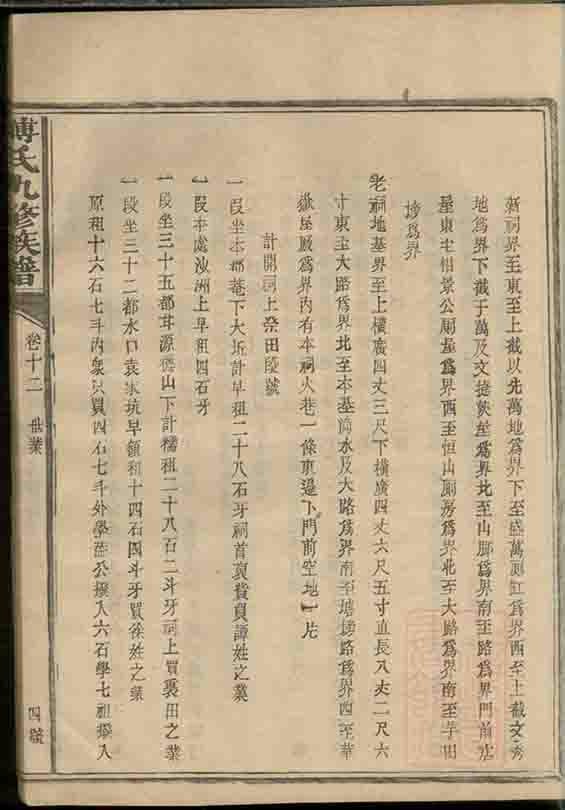 新祠界至東至上截以先萬地爲界下至盛萬厠缸爲界西至上截文秀
地爲界下截于萬及文捷挨屋爲界北至山脚爲界南至路爲界門前店
屋東至相景公厠屋爲界西至恒山厠房爲界北至大路爲界南至芋田
塝爲界
老祠地基界至上横廣四丈三尺下横廣四丈六尺五寸直長八丈二尺六
寸東至大路爲界北至本基滴水及大路爲界南至塘塝路爲界西至華
嶽屋厫爲界内有本祠火巷一條東邉下門前空地一片
計開祠上祭田段號
一段坐本都菴下大坵計早租二十八石牙祠首貢貲貢譚姓之業
一段本處汝洲上早租四石牙
一段坐三十五都茾源德山下計穤租二十八石二斗牙祠上買褁田之業
一段坐三十二都水口袁氷坑早領租十四石四斗牙買徐姓之業
原租十六石七斗内衆只買四石七斗外學 公撥入六石學七祖撥入
傅氏九修族譜
卷十二
世業
四號